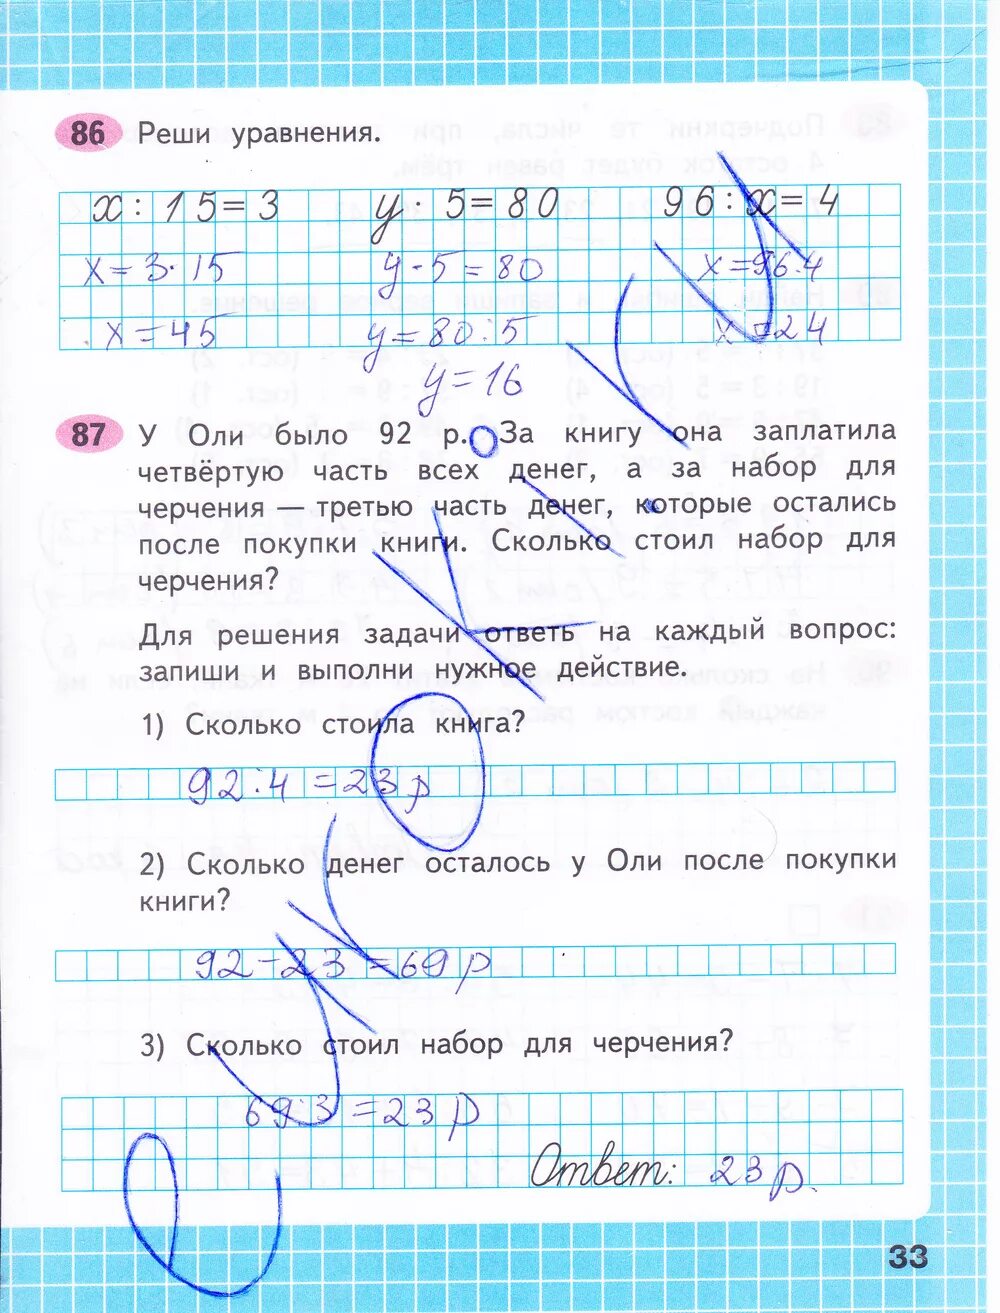 86 Реши уравнения.
x : 15 = 3 y · 5 = 80 96 : x = 4
x = 3 · 15 y · 5 = 80 x = 96 : 4
x = 45 y = 80 : 5 x = 24
y = 16
87 У Оли было 92 р. За книгу она заплатила
четвёртую часть всех денег, а за набор для
черчения — третью часть денег, которые остались
после покупки книги. Сколько стоил набор для
черчения?
Для решения задачи ответь на каждый вопрос:
запиши и выполни нужное действие.
1) Сколько стоила книга?
92 : 4 = 23 р
2) Сколько денег осталось у Оли после покупки
книги?
92 – 23 = 69 р
3) Сколько стоил набор для черчения?
69 : 3 = 23 р
Ответ: 23 р.
33